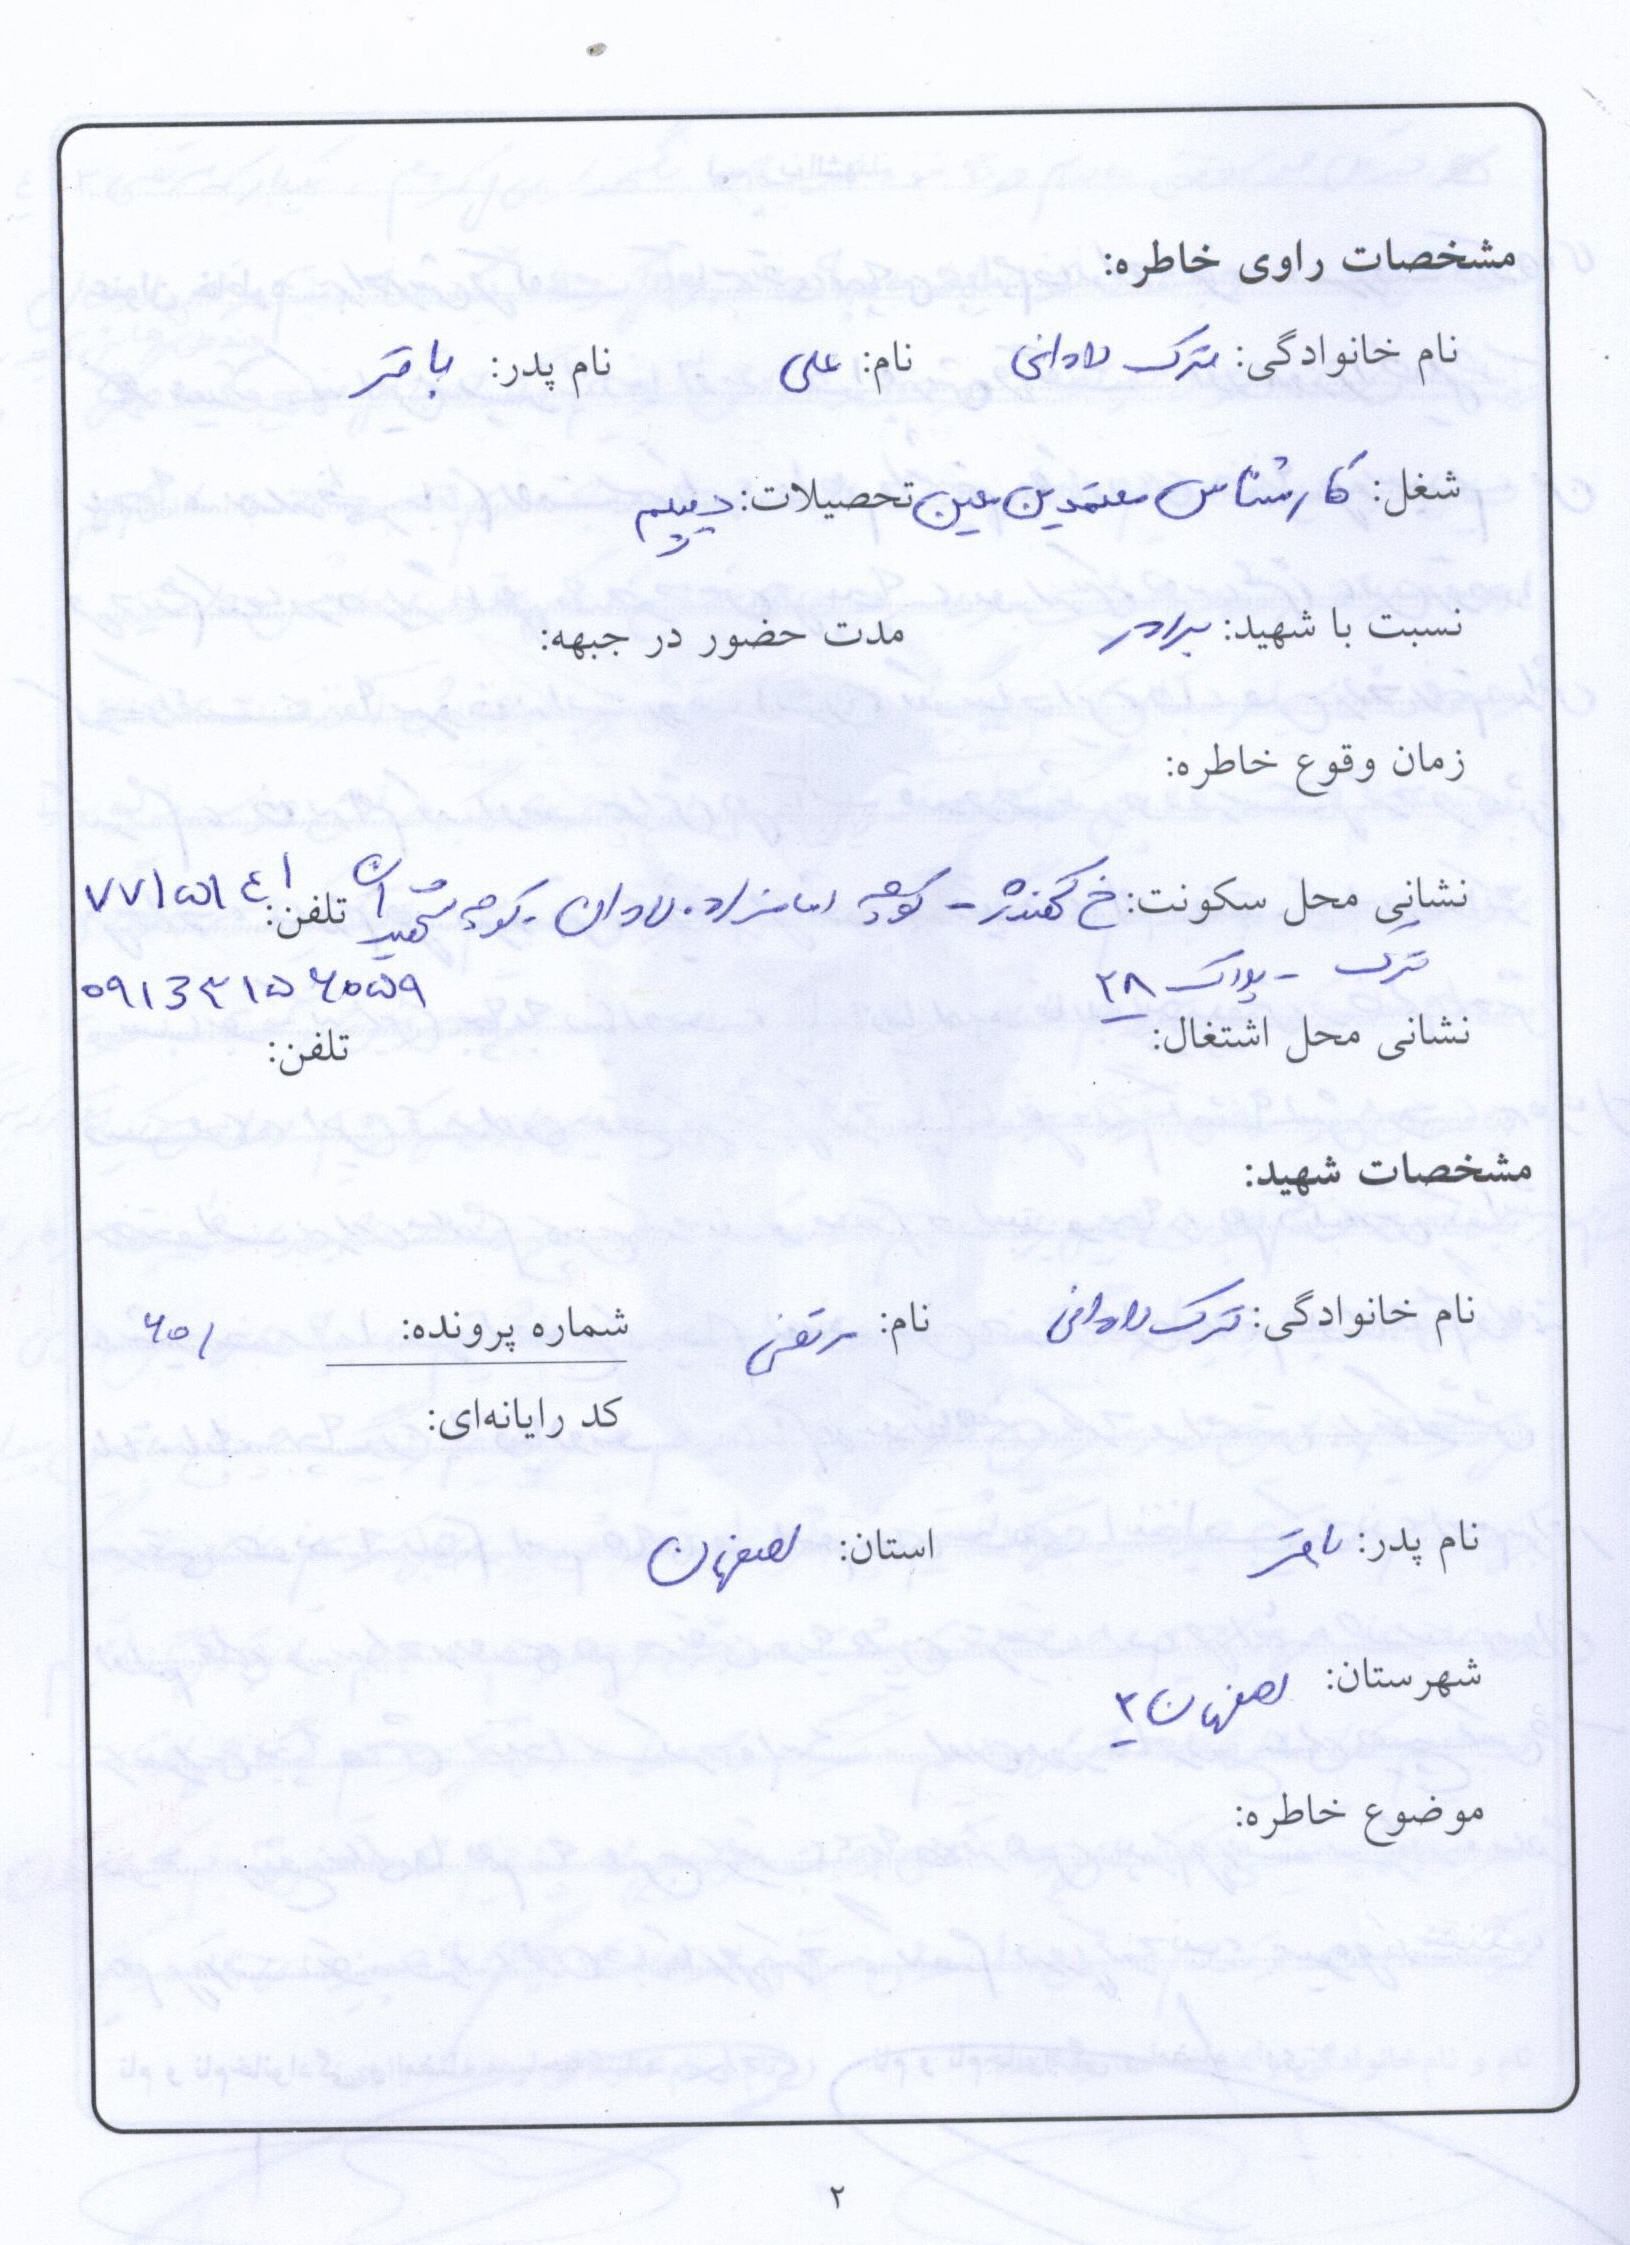 مشخصات راوی خاطره:
نام خانوادگی: ترک لادانی نام: علی نام پدر: باقر
شغل: کارشناس معتمدین معین تحصیلات: دیپلم
نسبت با شهید: برادر مدت حضور در جبهه:
زمان وقوع خاطره:
نشانی محل سکونت: خ کهندژ - کوچه امامزاده لادان - کوچه شهیدان تلفن:
ترک - پلاک ۲۸
نشانی محل اشتغال: تلفن:
مشخصات شهید:
نام خانوادگی: ترک لادانی نام: مرتضی شماره پرونده: ۶۰۱
کد رایانه‌ای:
نام پدر: باقر استان: اصفهان
شهرستان: اصفهان ۳
موضوع خاطره:
۲